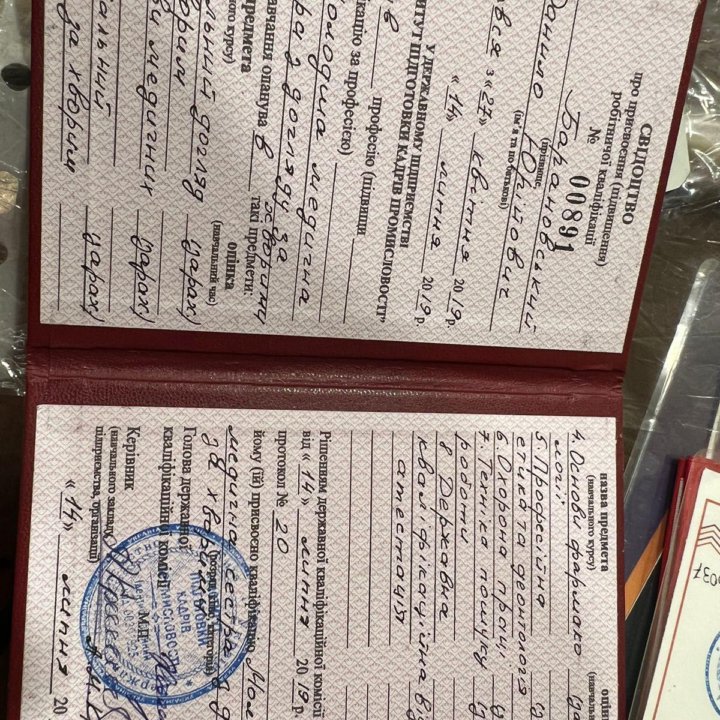 СВІДОЦТВО
про присвоєння (підвищення)
робітничої кваліфікації
№ 00891
Барановський
(прізвище,
Данило Юхимович
(ім'я та по батькові)
з «27» квітня 2019 р.
«14» липня 2019 р.
У ДЕРЖАВНОМУ ПІДПРИЄМСТВІ
ПІДГОТОВКИ КАДРІВ ПРОМИСЛОВОСТІ"
в
професію (підвищи
за професією)
молодша медична
з догляду за
хворими
навчання опанува в такі предмети:
предмета оцінка
курсу) (навчальний час)
догляд зарах)
медичних зарах)
за хворим зарах)
назва предмета
(навчального курсу)
4. Основи фармако
логії
5. Професійна
етика та деонтологія
6. Охорона праці
7. Техніка пошуку
роботи
8 Державна
кваліфікаційна
атестація
Рішенням державної кваліфікаційної комісії
від «14» липня 2019 р.
протокол № 20
йому (їй) присвоєно кваліфікацію
медична сестра
за хворими
Голова державної
кваліфікаційної комісії
М.П.
Керівник
(навчального закладу,
підприємства, організації)
«14» липня 20
0037